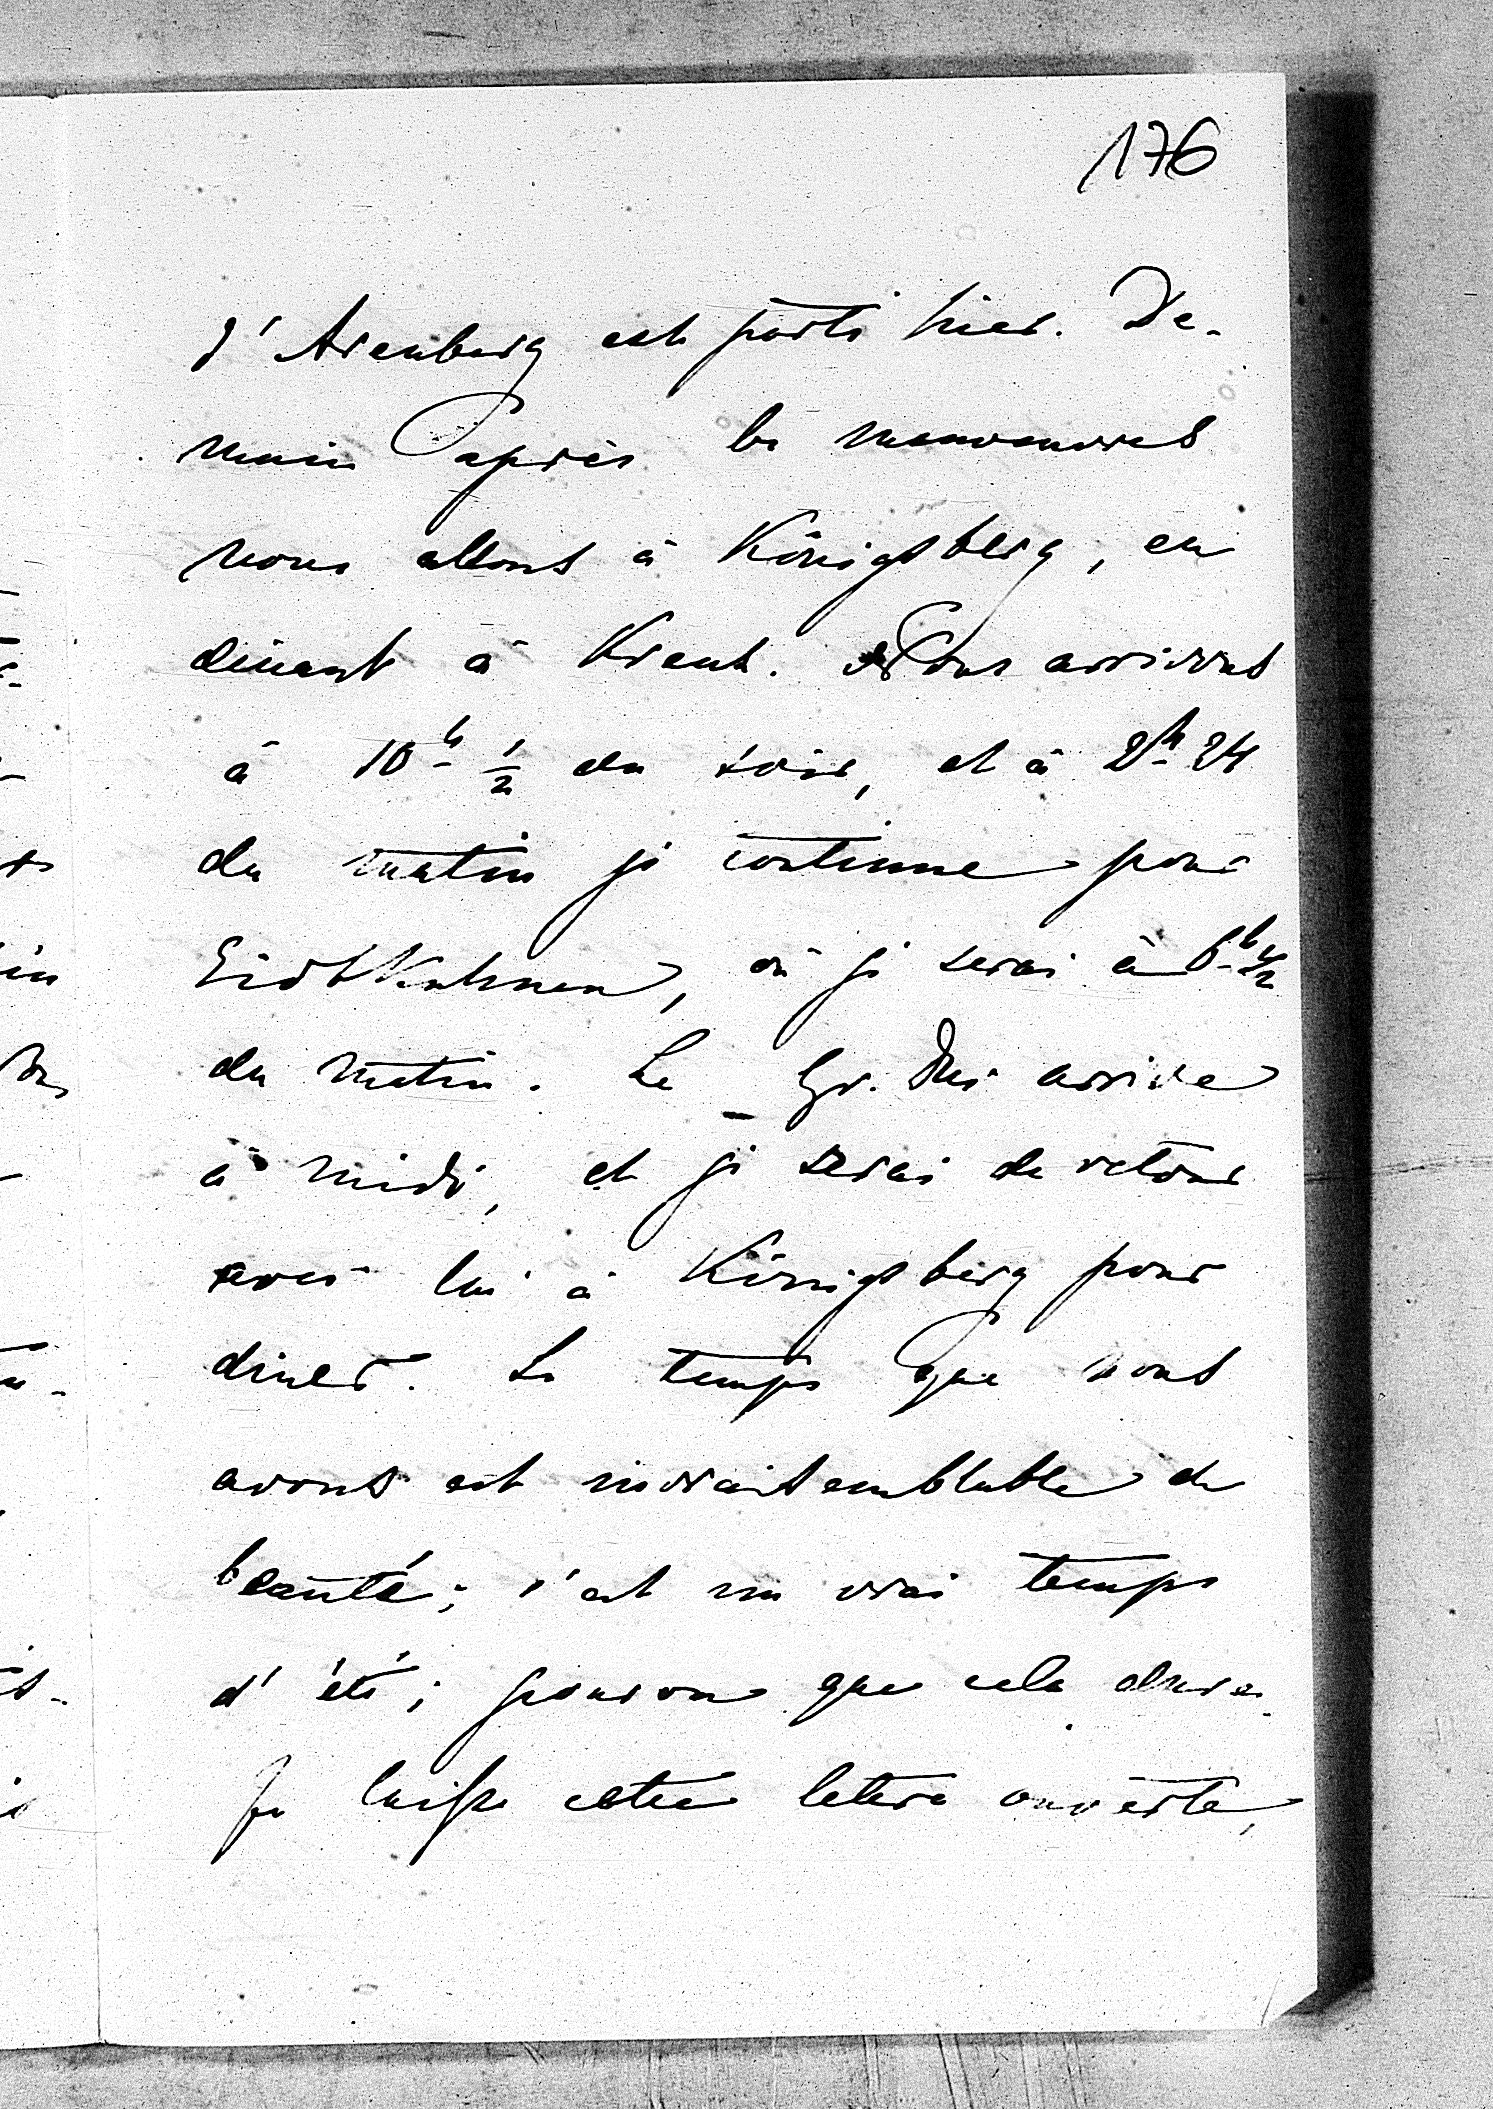 176
d'Arenberg est parti hier. De-
main après les manoeuvres
nous allons à Königsberg, en
dinant à Kranz. Nous arrivons
à 10 h ½ du soir, et à 2h 24
du matin je continue pour
Eidtkuhnen, où je serai à 6 h ½
du matin. Le Gr. Duc arrive
à midi, et je serai de retour
avec lui à Königsberg pour
diner. Le temps que nous
avons est invraisemblable de
beauté; c'est un vrai temps
d'été; pourvu que cela dure.
Je laisse cette lettre ouverte,